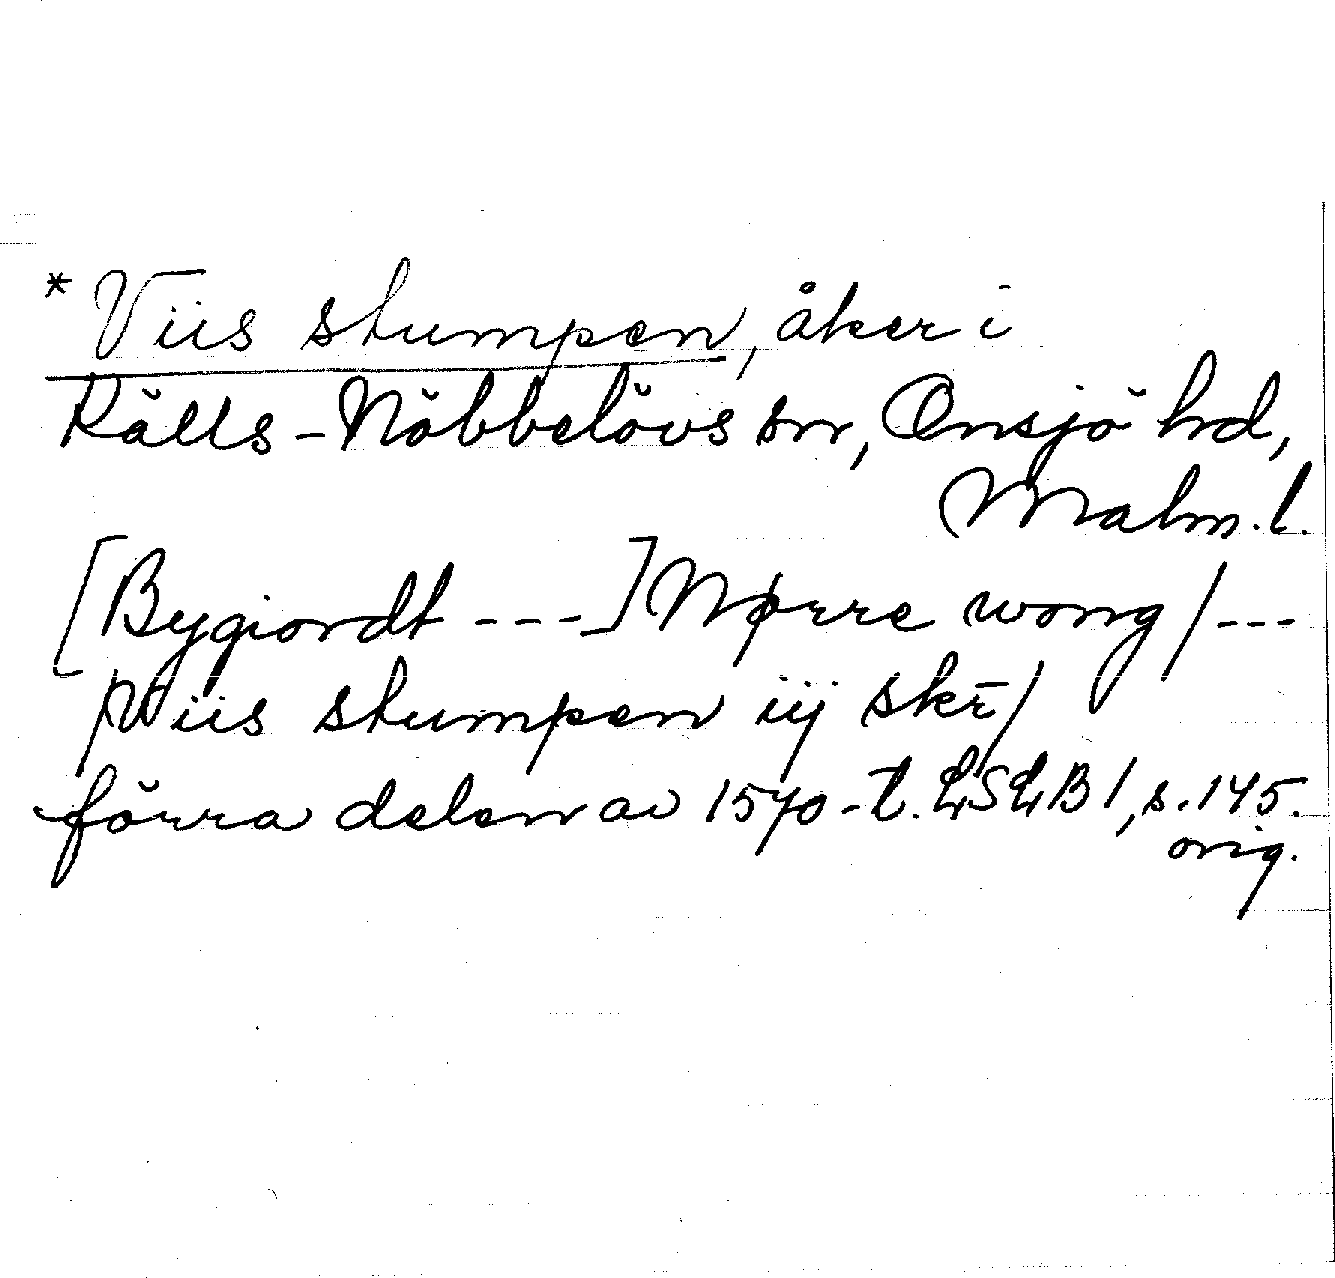 * Viis stumpen, åker i
Källs-Nöbbelövs sn, Onsjö hd,
Malm.l.
[Bygiordt ---] Nørre wong /---
/Wiis stumpen iij skr̄/
förra delen av 1570-t. LSLB 1, s.145.
orig.